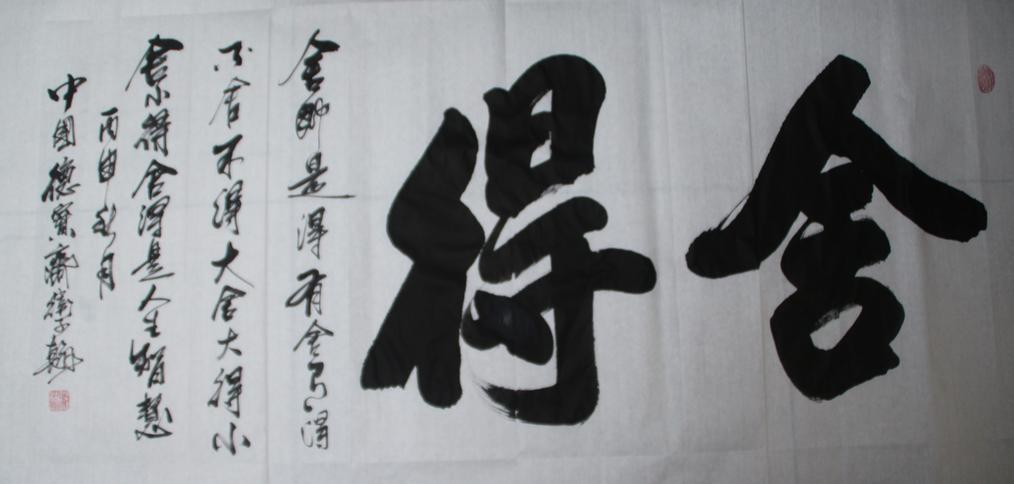 舍得
舍即是得有舍有得
不舍不得大舍大得小
舍小得舍得是人生智慧
丙申 月
中國德寶齋